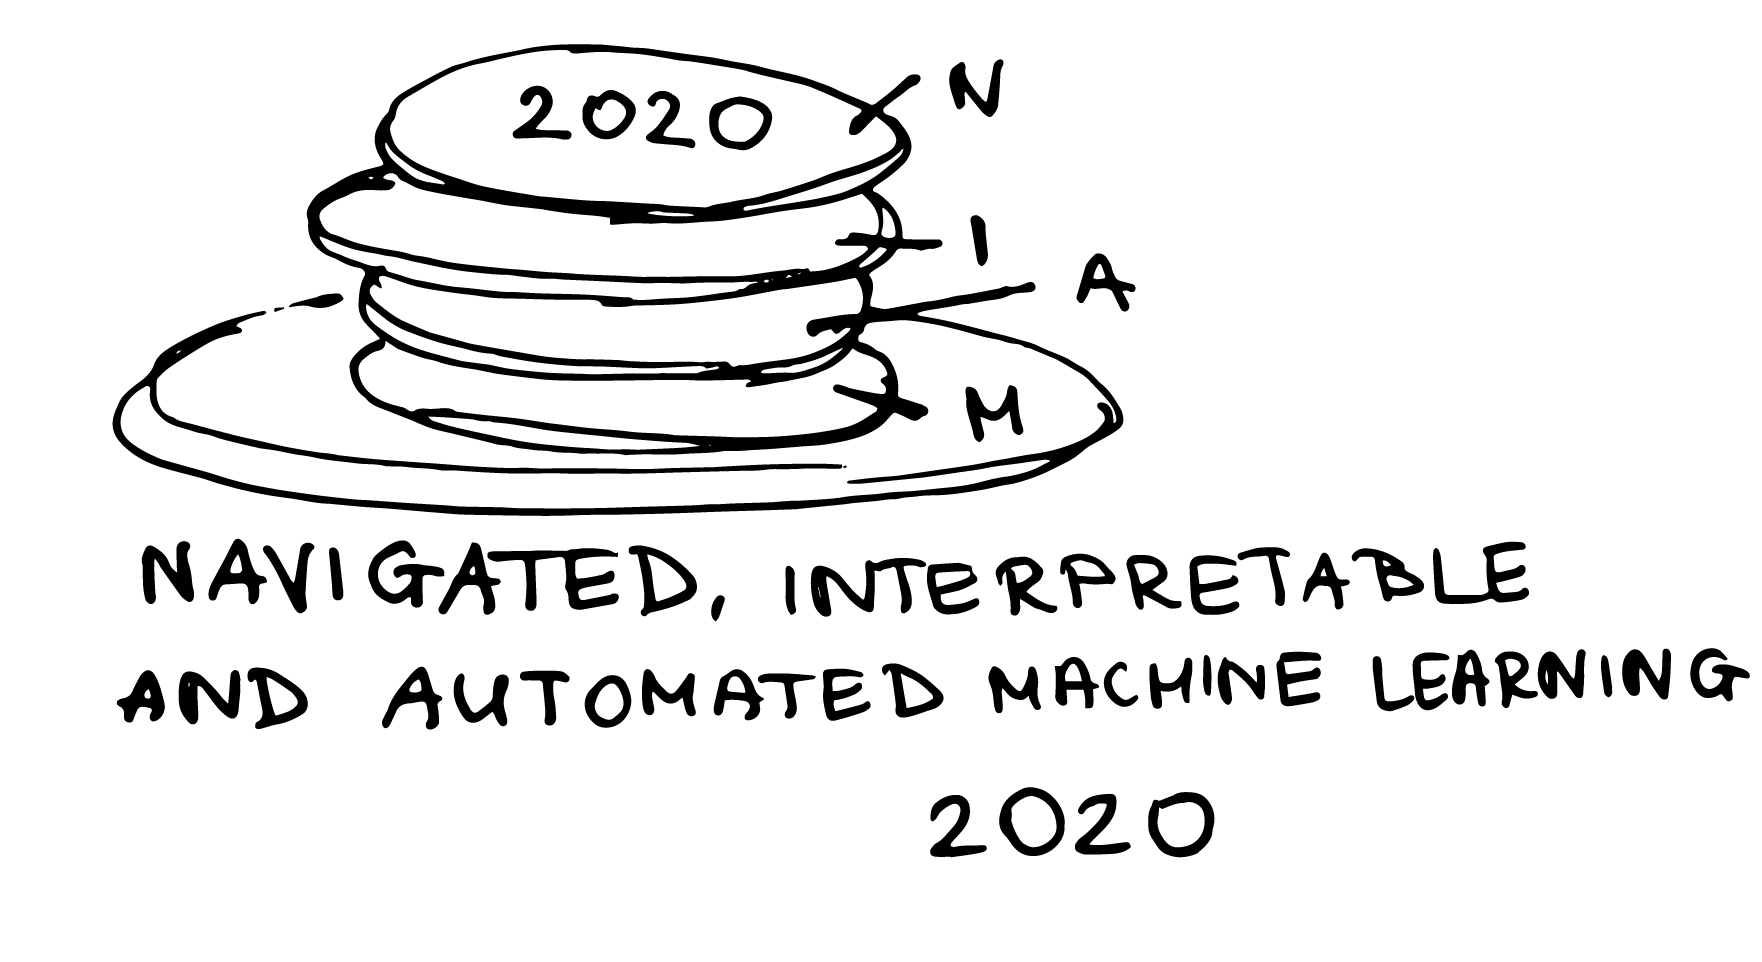 2020
N
I
A
M
NAVIGATED, INTERPRETABLE
AND AUTOMATED MACHINE LEARNING
2020